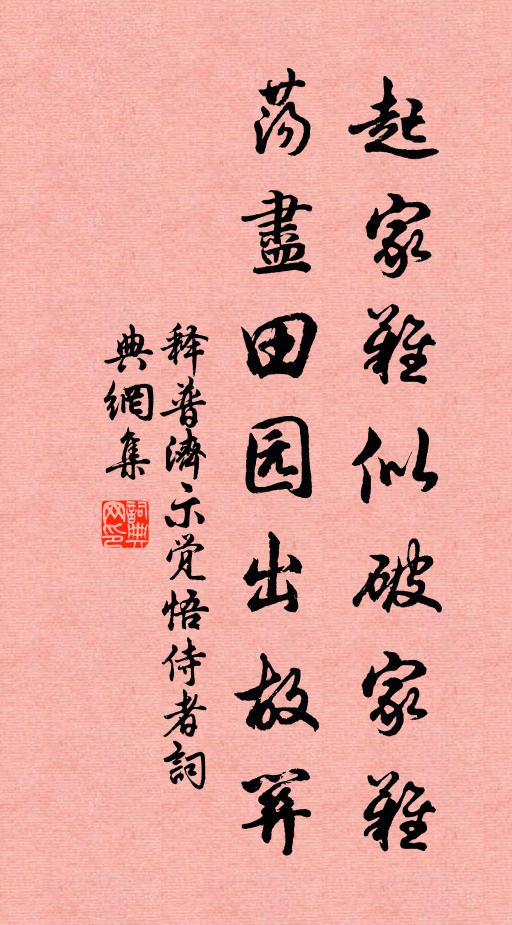 起家難似破家難
蕩盡田园出故關
释普濟示觉悟侍者詞
典網集
詞典网印